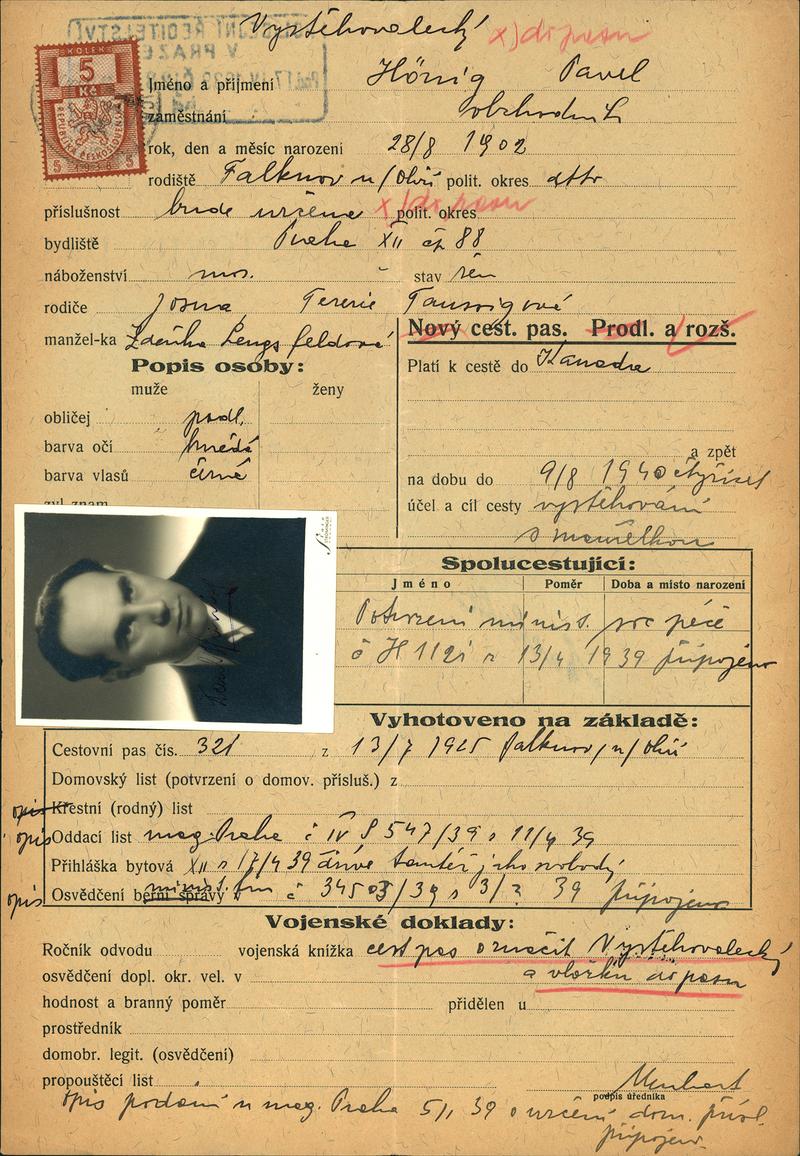 Vystěhovalecký x) do pasu
ŘEDITELSTVÍ
V PRAZE
KOLEK
5
Kč
REPUBLIKA ČESKOSLOVENSKÁ
5 5
Jméno a příjmení Hönig Pavel
zaměstnání obchodník
rok, den a měsíc narození 28/8 1902
rodiště Falknov n/Ohří polit. okres dtto
příslušnost bude určena x) do pasu polit. okres
bydliště Praha XII čp 88
náboženství mos. stav žen
rodiče Josua, Terezie Taussigová
manžel-ka Zdeňka Lengsfeldová
Nový cest. pas. Prodl. a rozš.
Popis osoby:
muže ženy
Platí k cestě do Kanada
obličej podl.
barva očí hnědá
barva vlasů černé
zvl. znam.
a zpět
na dobu do 9/8 1940 čtyřicet
účel a cíl cesty vystěhování
s manželkou
Spolucestující:
Jméno Poměr Doba a místo narození
Potvrzení minist. soc péče
č H 1121 z 13/4 1939 připojeno
Vyhotoveno na základě:
Cestovní pas čís. 321 z 13/7 1925 Falknov/n/Ohří
Domovský list (potvrzení o domov. přísluš.) z
opis Křestní (rodný) list
opis Oddací list mag. Praha č IV S 547/39 z 11/4 39
Přihláška bytová XII z 17/4 39 dříve tamtéž jako svobodný
opis Osvědčení berní správy minist. fin č 34503/39 z 3/2 39 připojeno
Vojenské doklady:
Ročník odvodu vojenská knížka cest pas označit Vystěhovalecký
osvědčení dopl. okr. vel. v a vložku do pasu
hodnost a branný poměr přidělen u
prostředník
domobr. legit. (osvědčení)
propouštěcí list
podpis úředníka
opis podání u mag. Praha 5/1 39 o určení dom. přísl.
připojen.